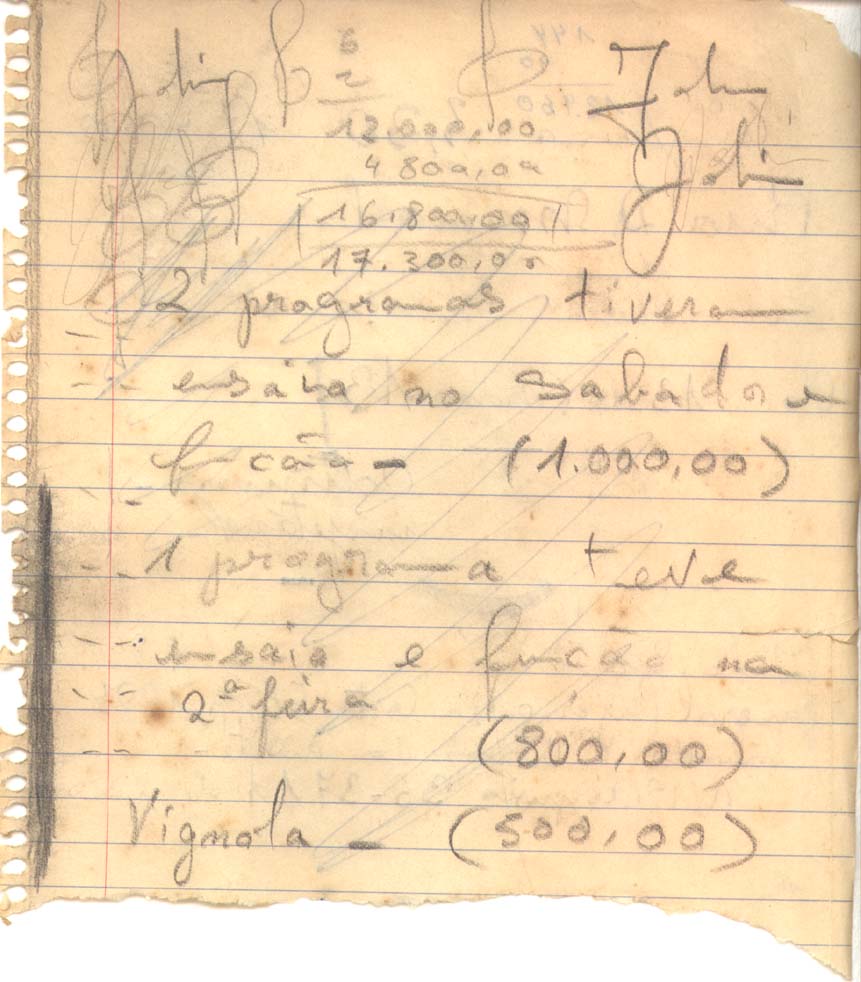 6
2
John
12.000,00
John
4 800,00
16.800,00
17.300,00
2 programas tiveram
ensaio no Sabado e
função - (1.000,00)
1 programa teve
ensaio e função na
2ª feira
(800,00)
Vignola - (500,00)